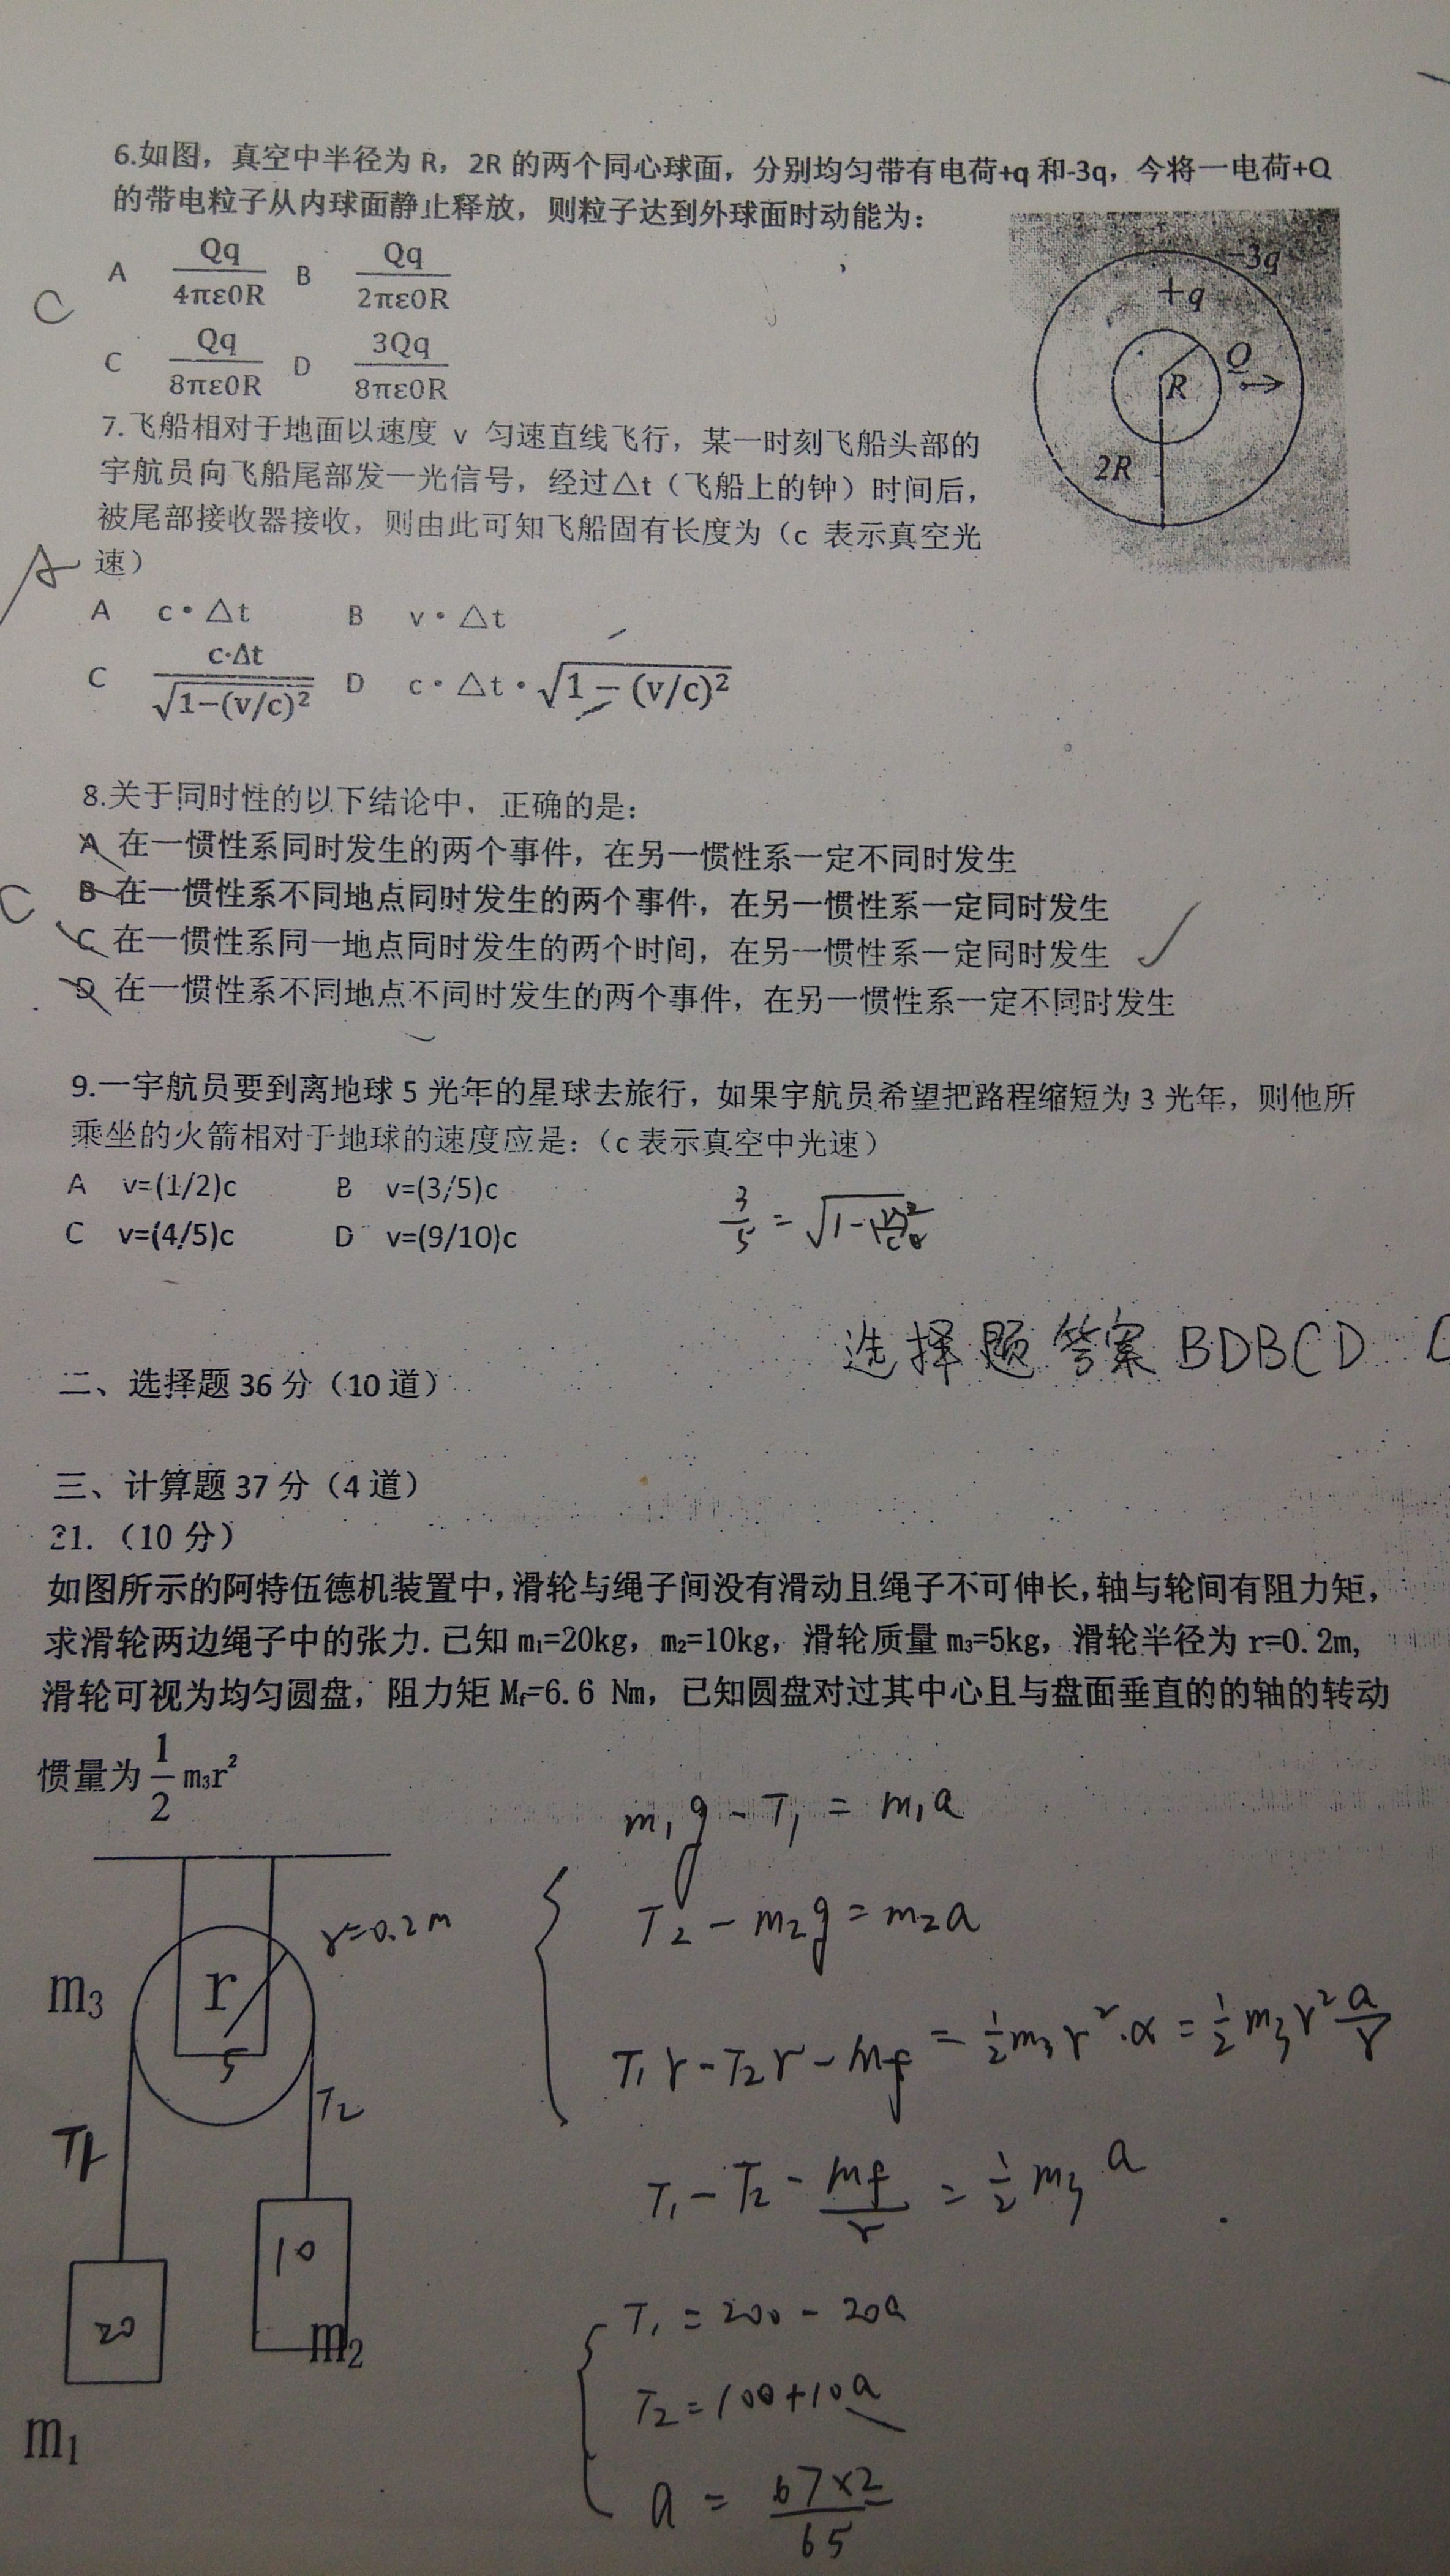 6.如图，真空中半径为 R，2R 的两个同心球面，分别均匀带有电荷+q 和-3q，今将一电荷+Q
的带电粒子从内球面静止释放，则粒子达到外球面时动能为：
A Qq/4πε0R B Qq/2πε0R
C
C Qq/8πε0R D 3Qq/8πε0R
-3q
+q
Q
R
2R
7.飞船相对于地面以速度 v 匀速直线飞行，某一时刻飞船头部的
宇航员向飞船尾部发一光信号，经过△t（飞船上的钟）时间后，
被尾部接收器接收，则由此可知飞船固有长度为（c 表示真空光
速）
A
A c·△t B v·△t
C c·Δt/√1−(v/c)² D c·△t·√1−(v/c)²
8.关于同时性的以下结论中，正确的是：
A 在一惯性系同时发生的两个事件，在另一惯性系一定不同时发生
B 在一惯性系不同地点同时发生的两个事件，在另一惯性系一定同时发生
C
C 在一惯性系同一地点同时发生的两个时间，在另一惯性系一定同时发生 ✓
D 在一惯性系不同地点不同时发生的两个事件，在另一惯性系一定不同时发生
9.一宇航员要到离地球 5 光年的星球去旅行，如果宇航员希望把路程缩短为 3 光年，则他所
乘坐的火箭相对于地球的速度应是：（c 表示真空中光速）
A v=(1/2)c B v=(3/5)c
C v=(4/5)c D v=(9/10)c
3/5 = √1-(v/c)²
选择题答案 BDBCD
二、选择题 36 分（10 道）
三、计算题 37 分（4 道）
21.（10 分）
如图所示的阿特伍德机装置中，滑轮与绳子间没有滑动且绳子不可伸长，轴与轮间有阻力矩，
求滑轮两边绳子中的张力.已知 m₁=20kg，m₂=10kg，滑轮质量 m₃=5kg，滑轮半径为 r=0.2m，
滑轮可视为均匀圆盘，阻力矩 Mf=6.6 Nm，已知圆盘对过其中心且与盘面垂直的的轴的转动
惯量为 1/2 m₃r²
m₁g - T₁ = m₁a
T₂ - m₂g = m₂a
T₁r - T₂r - Mf = ½m₃r²·α = ½m₃r² a/r
T₁ - T₂ - Mf/r = ½m₃a
T₁ = 200 - 20a
T₂ = 100+10a
a = 67×2/65
r=0.2m
m₃
r
5
T₂
T₁
10
m₂
20
m₁